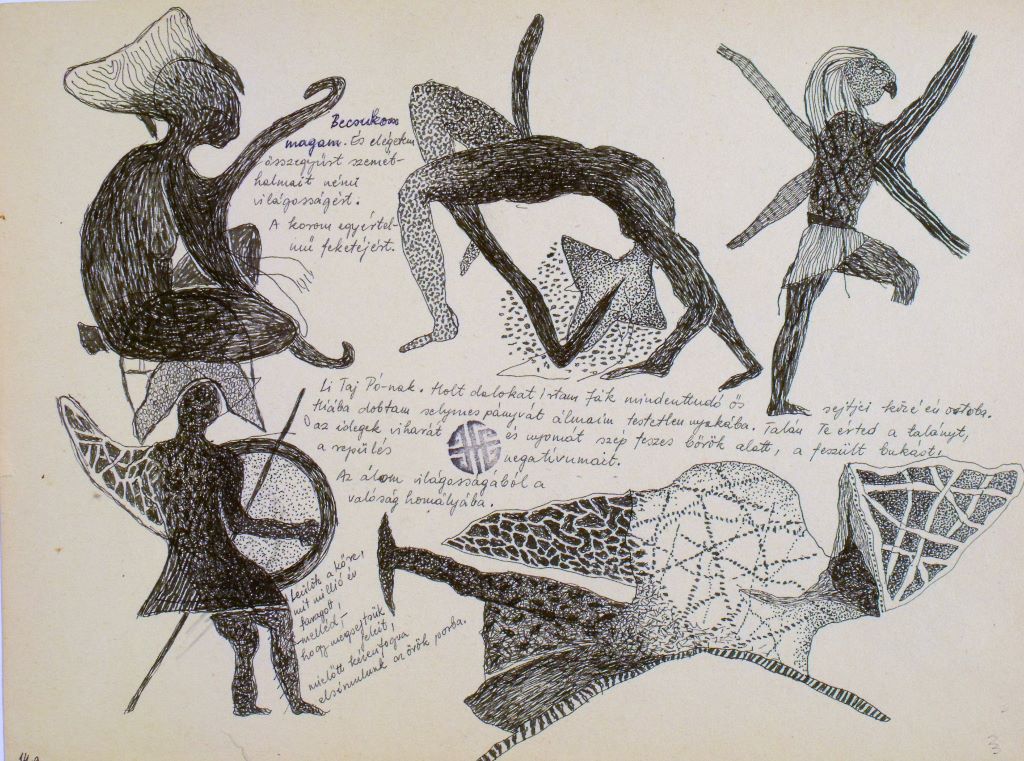 Becsukom
magam. És elégetem
összegyűrt szemét-
halmait némi
világosságért.
A korom egyértel-
mű feketéjért.
Li Taj Pó-nak. Holt dalokat írtam fák mindenttudó ős sejtjei közé én ostoba.
Hiába dobtam selymes pányvát álmaim testetlen nyakába. Talán Te érted a talányt,
az idegek viharát és nyomát szép feszes bőrök alatt, a feszült bukást,
a repülés negatívumait.
Az álom világosságából a
valóság homályába.
Leülök a kőre,
mit millió év
faragott,
melléd,
hogy megsejtsük
feleit,
mielőtt kézenfogva
elsimulunk az örök porba.